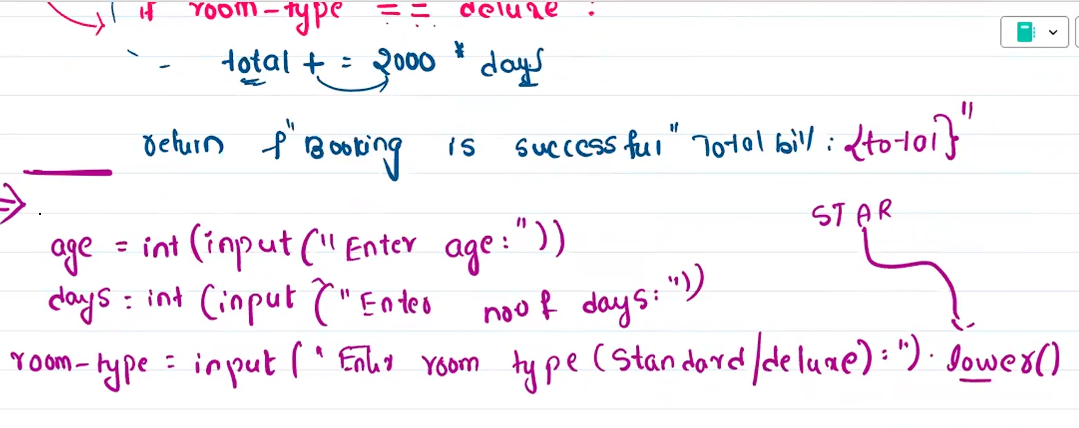 if room-type == deluxe :
- total + = 2000 * days
return f"Booking is successful" Total bill : {total}"
STAR
age = int(input("Enter age:"))
days = int (input ("Enter no of days:"))
room-type = input ("Enter room type (Standard/deluxe):").lower()